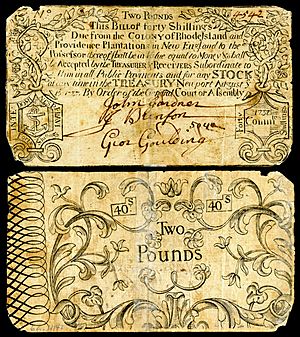 TWO POUNDS
This Bill of forty Shillings
Due from the Colony of Rhode Island and
Providence Plantations in New England to the
Possessor thereof shall be in value equal to Money & shall be
Accepted by the TREASURER & RECEIVERS Subordinate to
Him in all Public Payments and for any STOCK
at any time in the TREASURY Newport August
By Order of the Court or Assembly
1737
John Gardner
Geor Goulding
40S
40S
TWO
POUNDS